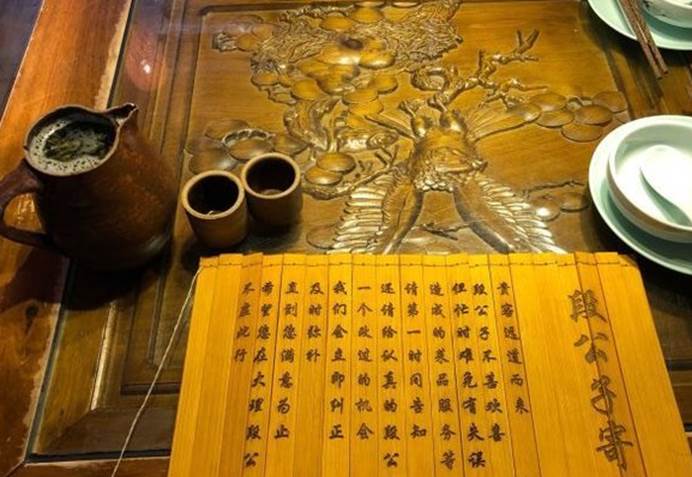 段公子寄
贵客远道而来
段公子不甚欢喜
但忙时难免有失误
造成的菜品服务等
请第一时间告知
还请给认真的段公
一个改过的机会
我们会立即纠正
及时弥补
直到您满意为止
希望您在大理段公
不虚此行